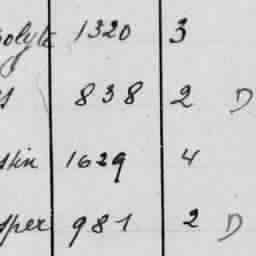 olyte 1320 3
s 838 2 D
stin 1629 4
sper 981 2 D